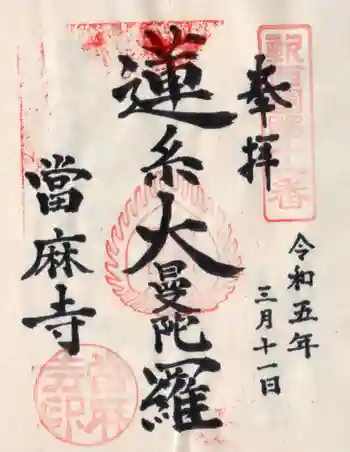 奉拝
令和五年
三月十一日
蓮糸大曼陀羅
當麻寺